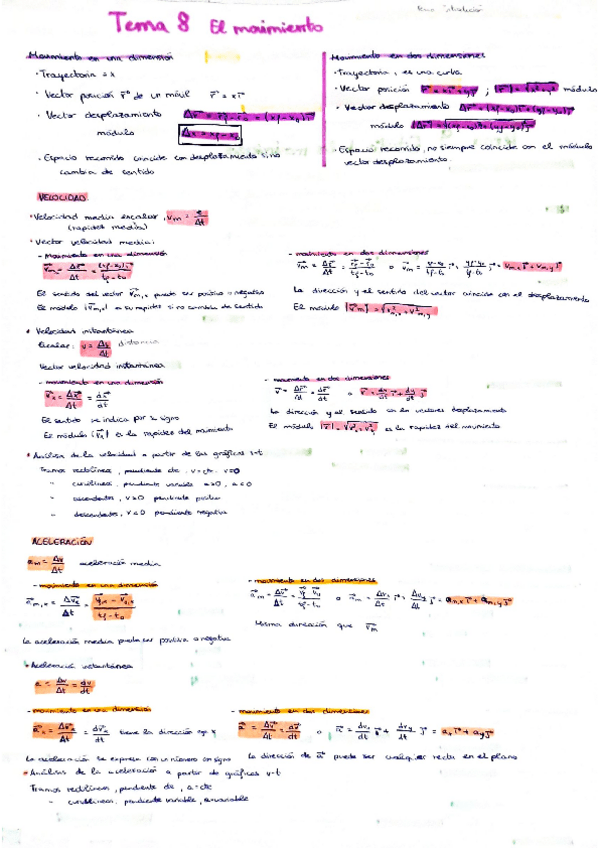 Tema 8 El movimiento
Movimiento en una dimensión
· Trayectoria = x
· Vector posición r⃗ de un móvil r⃗ = x i⃗
· Vector desplazamiento Δr⃗ = r⃗f - r⃗0 = (xf - x0) i⃗
módulo Δx = xf - x0
· Espacio recorrido coincide con desplazamiento si no
cambia de sentido
Movimiento en dos dimensiones
· Trayectoria, es una curva
· Vector posición r⃗ = x i⃗ + y j⃗ ; |r⃗| = √x²+y² módulo
· Vector desplazamiento Δr⃗ = (xf - x0) i⃗ + (yf - y0) j⃗
módulo |Δr⃗| = √(xf - x0)² + (yf - y0)²
· Espacio recorrido, no siempre coincide con el módulo
vector desplazamiento.
VELOCIDAD
· Velocidad media escalar, vm = e/Δt
(rapidez media)
· Vector velocidad media:
- Movimiento en una dimensión
v⃗m = Δr⃗/Δt = (xf - x0) i⃗ / tf - t0
El sentido del vector v⃗m,x puede ser positivo o negativo
El módulo |v⃗m,x| = su rapidez si no cambia de sentido
- movimiento en dos dimensiones
La dirección y el sentido del vector coincide con el desplazamiento
El módulo |v⃗m| = √v²m,x + v²m,y
· Velocidad instantánea
Escalar: v = Δs/Δt distancia
Vector velocidad instantánea
- movimiento en una dimensión
v⃗x = Δx⃗/Δt = dx⃗/dt
El sentido se indica por su signo
El módulo |v⃗x| es la rapidez del movimiento
- movimiento en dos dimensiones
v⃗ = Δr⃗/Δt = dr⃗/dt o v⃗ = dx/dt i⃗ + dy/dt j⃗
La dirección y el sentido vectores desplazamiento
El módulo |v⃗| = √v²x + v²y es la rapidez del movimiento
* Análisis de la velocidad a partir de las gráficas
Tramos rectilíneos, pendiente cte, v = cte. v=0
" curvilíneos, pendiente variable a>0, a<0
" ascendentes, v>0 pendiente positiva
" descendentes, v<0 pendiente negativa
ACELERACIÓN
am = Δv/Δt aceleración media
- movimiento en una dimensión
a⃗m,x = Δv⃗x/Δt = v⃗f,x - v⃗0,x / tf - t0
La aceleración media puede ser positiva o negativa
- movimiento en dos dimensiones
Misma dirección que v⃗m
· Aceleración instantánea
a = Δv/Δt = dv/dt
- movimiento en una dimensión
a⃗x = Δv⃗x/Δt = dv⃗x/dt tiene la dirección eje x
La aceleración se expresa con un número con signo
- movimiento en dos dimensiones
a⃗ = Δv⃗/Δt = dv⃗/dt o a⃗ = dvx/dt i⃗ + dvy/dt j⃗ = ax i⃗ + ay j⃗
La dirección de a⃗ puede ser cualquier recta en el plano
* Análisis de la aceleración a partir de gráficas v-t
Tramos rectilíneos, pendiente cte, a=cte
" curvilíneos, pendiente variable, a variable